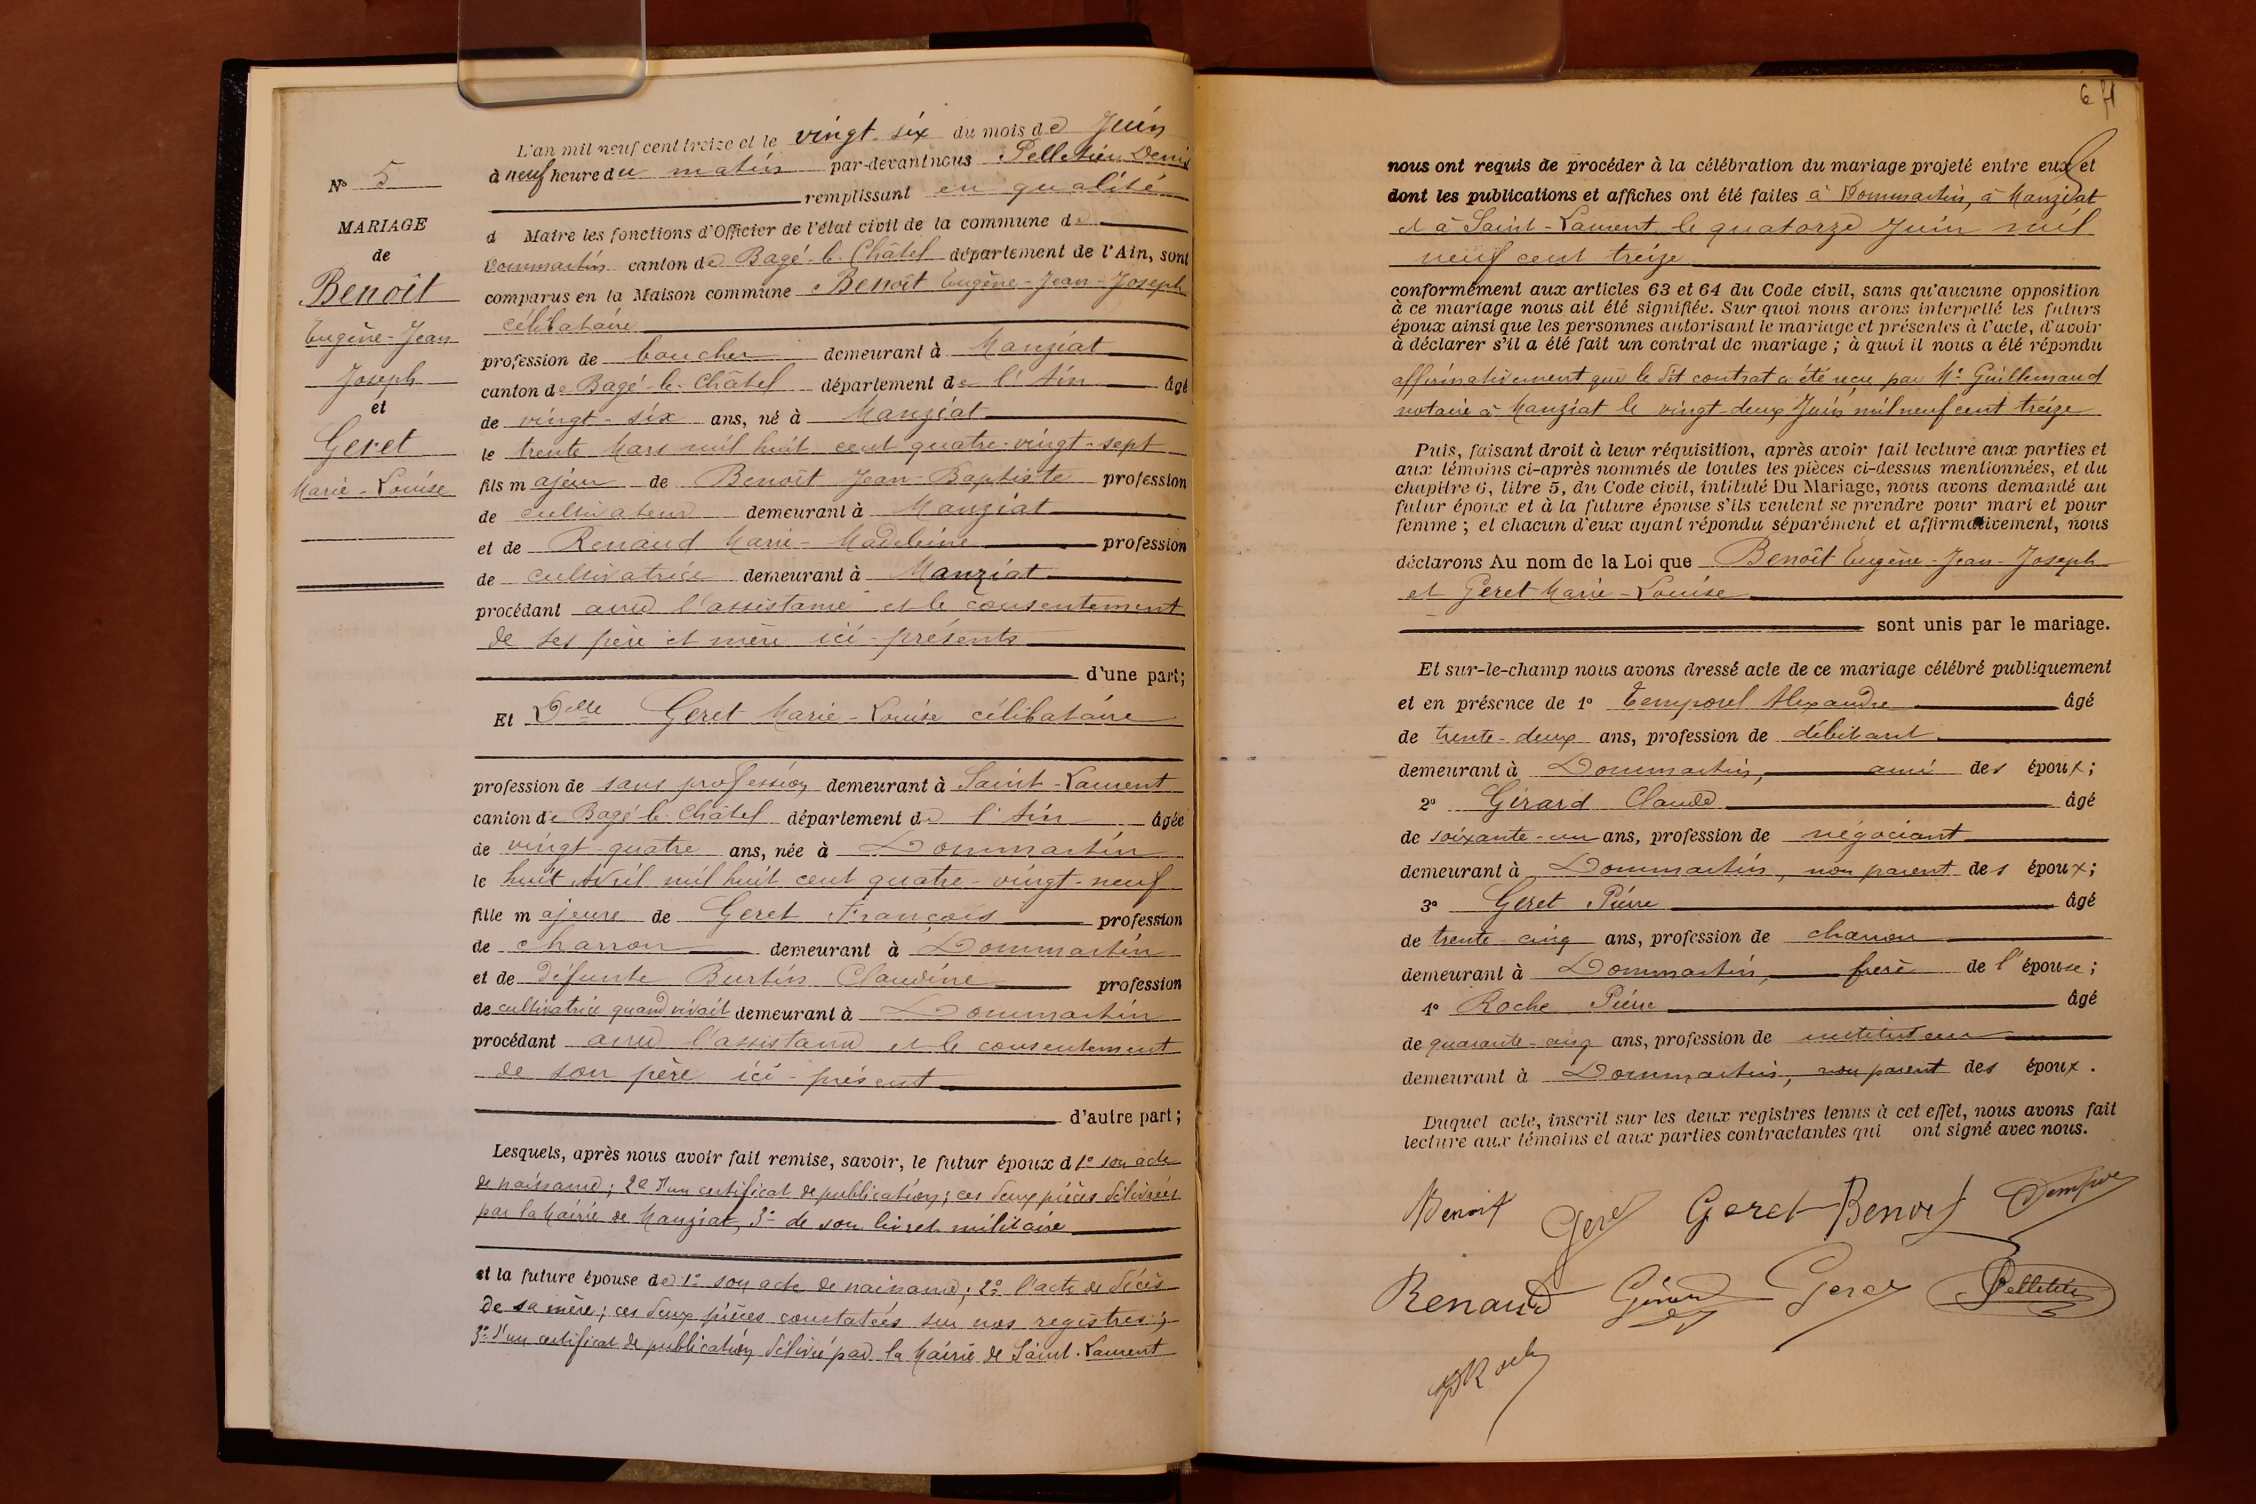 N° 5
MARIAGE
de
Benoît
Eugène-Jean
Joseph
et
Geret
Marie-Louise
L'an mil neuf cent treize et le vingt-six du mois de Juin
à neuf heure du matin par-devant nous Pelletier Denis
remplissant en qualité
d Maire les fonctions d'Officier de l'état civil de la commune de
Dommartin canton de Bagé-le-Châtel département de l'Ain, sont
comparus en la Maison commune Benoît Eugène-Jean-Joseph
célibataire
profession de boucher demeurant à Manziat
canton de Bagé-le-Châtel département de l'Ain âgé
de vingt-six ans, né à Manziat
le trente Mars mil huit cent quatre-vingt-sept
fils majeur de Benoît Jean-Baptiste profession
de cultivateur demeurant à Manziat
et de Renaud Marie-Madeleine profession
de cultivatrice demeurant à Manziat
procédant avec l'assistance et le consentement
de ses père et mère ici-présents
d'une part;
Et Delle Geret Marie-Louise célibataire
profession de sans profession demeurant à Saint-Laurent
canton de Bagé-le-Châtel département de l'Ain âgée
de vingt-quatre ans, née à Dommartin
le huit Avril mil huit cent quatre-vingt-neuf
fille majeure de Geret François profession
de charron demeurant à Dommartin
et de défunte Burtin Claudine profession
de cultivatrice quand vivait demeurant à Dommartin
procédant avec l'assistance et le consentement
de son père ici-présent
d'autre part;
Lesquels, après nous avoir fait remise, savoir, le futur époux d 1° son acte
de naissance; 2° d'un certificat de publication; ces deux pièces délivrées
par la Mairie de Manziat, 3° de son livret militaire
et la future épouse de 1° son acte de naissance; 2° l'acte de décès
de sa mère; ces deux pièces constatées sur nos registres;
3° d'un certificat de publication délivré par la Mairie de Saint-Laurent
6
nous ont requis de procéder à la célébration du mariage projeté entre eux et
dont les publications et affiches ont été faites à Dommartin, à Manziat
et à Saint-Laurent le quatorze Juin mil
neuf cent treize
conformément aux articles 63 et 64 du Code civil, sans qu'aucune opposition
à ce mariage nous ait été signifiée. Sur quoi nous avons interpellé les futurs
époux ainsi que les personnes autorisant le mariage et présentes à l'acte, d'avoir
à déclarer s'il a été fait un contrat de mariage; à quoi il nous a été répondu
affirmativement que le dit contrat a été reçu par Me Guillemaud
notaire à Manziat le vingt-deux Juin mil neuf cent treize
Puis, faisant droit à leur réquisition, après avoir fait lecture aux parties et
aux témoins ci-après nommés de toutes les pièces ci-dessus mentionnées, et du
chapitre 6, titre 5, du Code civil, intitulé Du Mariage, nous avons demandé au
futur époux et à la future épouse s'ils veulent se prendre pour mari et pour
femme; et chacun d'eux ayant répondu séparément et affirmativement, nous
déclarons Au nom de la Loi que Benoît Eugène-Jean-Joseph
et Geret Marie-Louise
sont unis par le mariage.
Et sur-le-champ nous avons dressé acte de ce mariage célébré publiquement
et en présence de 1° Temporel Alexandre âgé
de trente-deux ans, profession de débitant
demeurant à Dommartin, ami des époux;
2° Gérard Claude âgé
de soixante-un ans, profession de négociant
demeurant à Dommartin, non parent des époux;
3° Geret Pierre âgé
de trente-cinq ans, profession de charron
demeurant à Dommartin, frère de l'épouse;
4° Roche Pierre âgé
de quarante-cinq ans, profession de instituteur
demeurant à Dommartin, non parent des époux.
Duquel acte, inscrit sur les deux registres tenus à cet effet, nous avons fait
lecture aux témoins et aux parties contractantes qui ont signé avec nous.
Benoit Geret Geret Benoit
Renaud Gérard Geret Pelletier
Roche